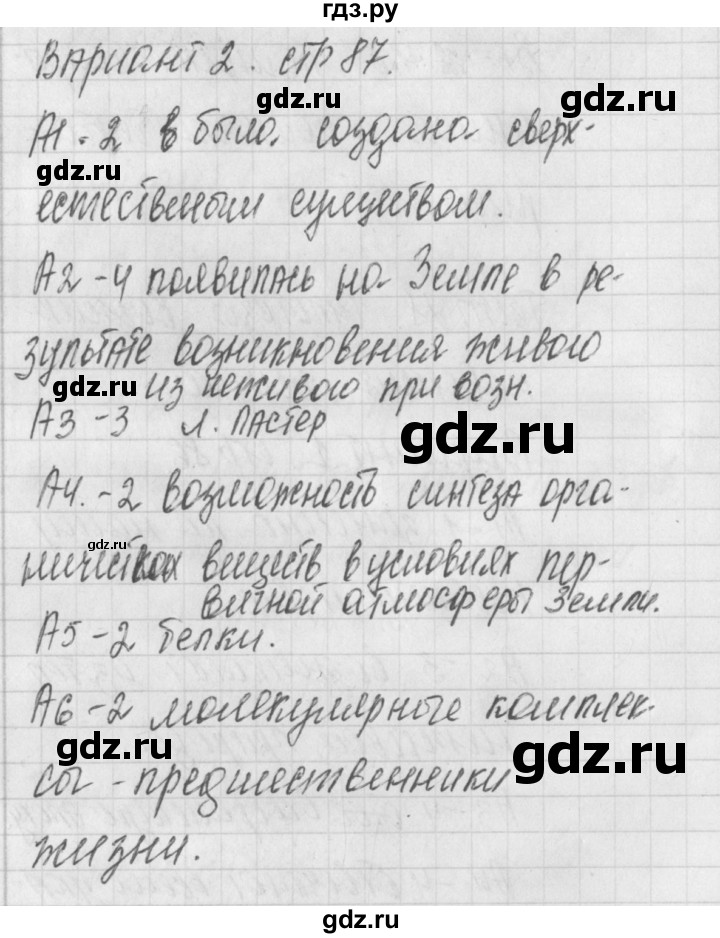 гдз.ру
Вариант 2. стр 87.
gdz.ru
А1-2 в было создано сверх-
gdz.ru
естественым существом.
А2-4 появилась на Земле в ре-
gdz.ru
зультате возникновения живого
gdz.ru из неживого при возн.
А3-3 Л. Пастер
gdz.ru
А4.-2 возможность синтеза орга-
gdz.ru
нических веществ в условиях пер-
вичной атмосферы Земли.
А5-2 белки.
gdz.ru
А6-2 молекулярные комплек-
gdz.ru
сы - предшественники
gdz.ru
жизни.
gdz.ru
гдз.ру